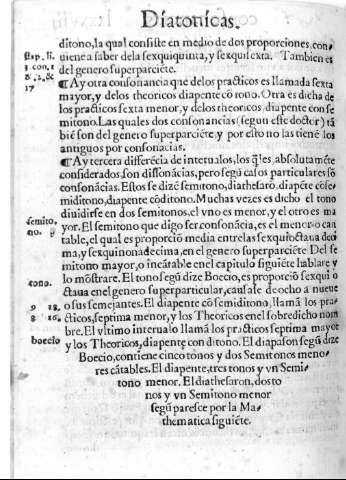 Díatonícas.
ditono, la qual consiste en medio de dos proporciones, con-
uiene a saber dela sexquiquinta, y sexquisexta. Tambien es
del genero superparciēte.
¶ Ay otra consonancia que delos practicos es llamada sexta
mayor, y delos theoricos diapente cō tono. Otra es dicha de
los practicos sexta menor, y delos theoricos, diapente con se
mitono. Las quales dos consonancias (segun este doctor) tā
biē son del genero superparciēte, y por esto no las tienē los
antiguos por consonācias.
¶ Ay tercera differēcia de interualos, los q̄les, absoluta mēte
considerados son dissonācias, pero segū casos particulares sō
consonācias. Estos se dizē semitono, diathesarō, diapēte cōse
miditono, diapente cōditono. Muchas vezes es dicho el tono
diuidirse en dos semitonos, el vno es menor, y el otro es ma
yor. El semitono que digo ser consonācia, es el menor o can
table, el qual es proporciō media entre las sexquioctaua deci
ma, y sexquinonadecima, en el genero superparciēte Del se
mitono mayor, o incātable en el capitulo siguiēte hablare y
lo mōstrare. El tono segū dize Boecio, es proporciō sexqui o
ctaua en el genero superparticular, causase de ocho a nueue
o sus semejantes. El diapente cō semiditono, llamā los pra-
cticos, septima menor, y los Theoricos en el sobredicho nom
bre. El vltimo interualo llamā los practicos septima mayor
y los Theoricos, diapente con ditono. El diapason segū dize
Boecio, contiene cinco tonos y dos Semitonos meno-
res cātables. El diapente, tres tonos y vn Semi-
tono menor. El diathesaron, dos to
nos y vn Semitono menor
segū paresce por la Ma-
thematica siguiēte.
17
semito,
no.
tono.
9 18.
8 16.
boecio